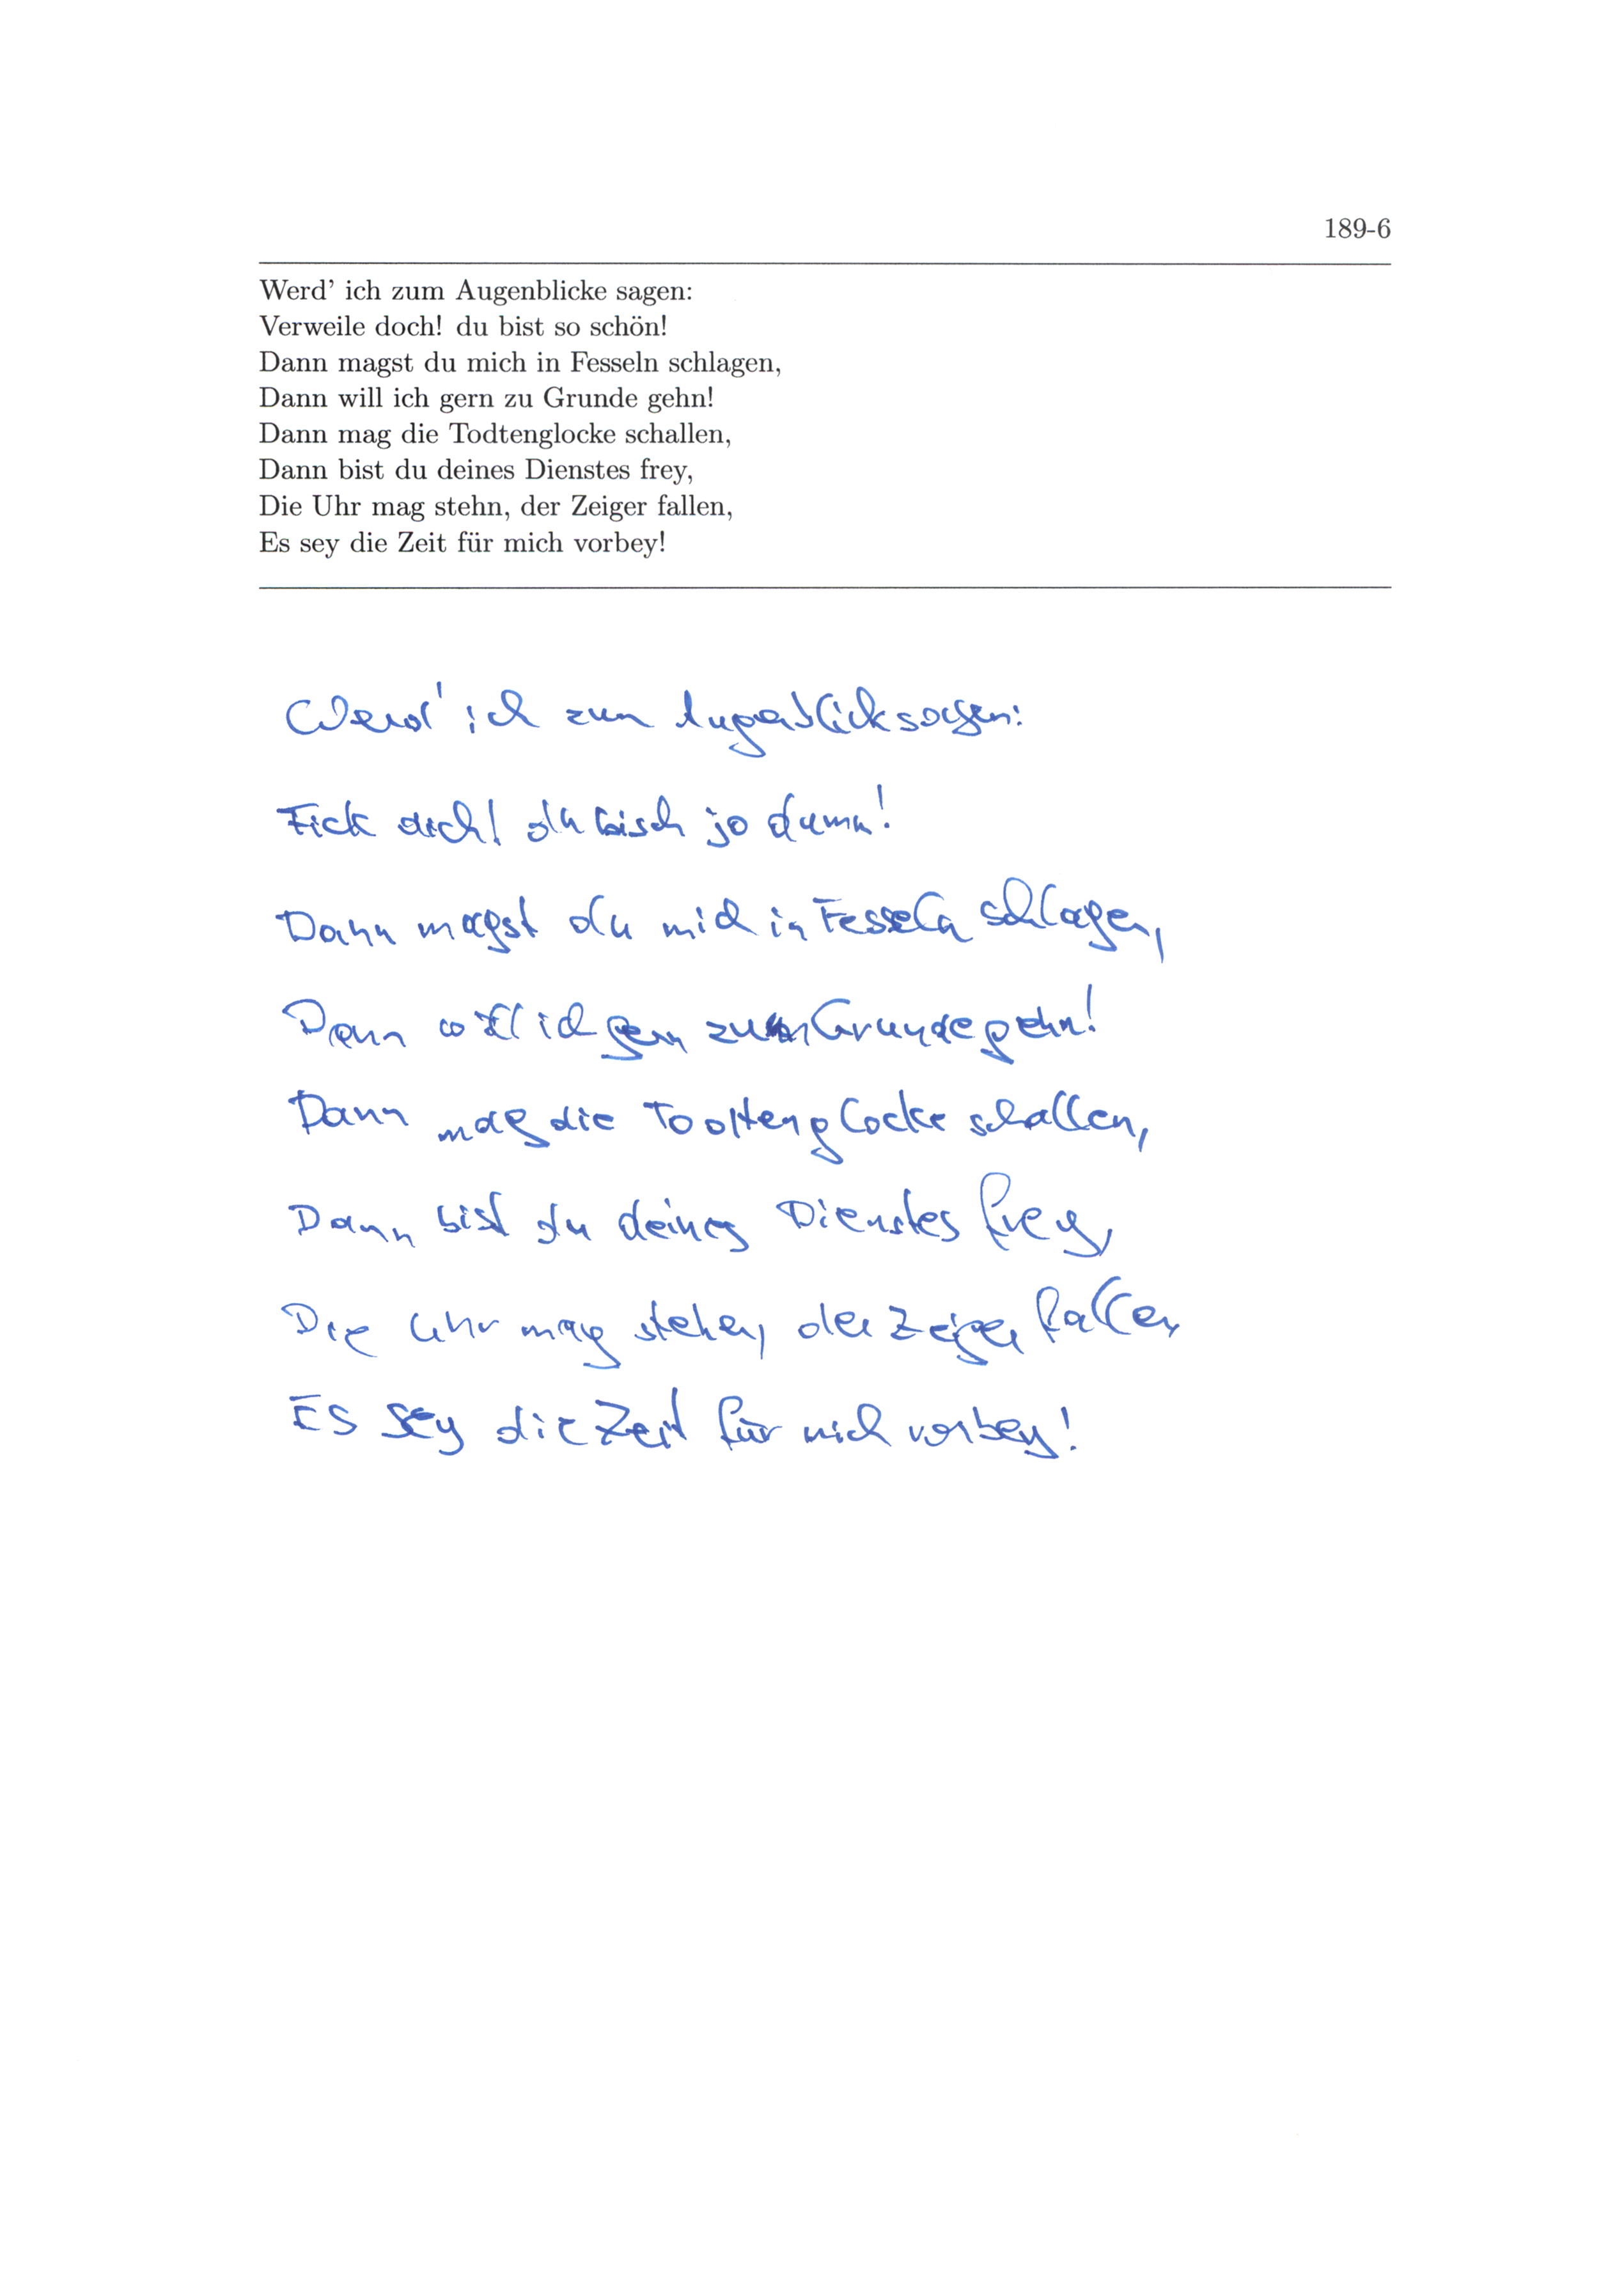 189-6
Werd' ich zum Augenblicke sagen:
Verweile doch! du bist so schön!
Dann magst du mich in Fesseln schlagen,
Dann will ich gern zu Grunde gehn!
Dann mag die Todtenglocke schallen,
Dann bist du deines Dienstes frey,
Die Uhr mag stehn, der Zeiger fallen,
Es sey die Zeit für mich vorbey!
Werd' ich zum Augenblick sagen:
Fick dich! du bisch jo dumm!
Dann magst du mich in Fesseln schlagen,
Dann will ich gern zum Grunde gehn!
Dann mag die Todtenglocke schallen,
Dann bist du deines Dienstes frey,
Die Uhr mag stehen, der Zeiger fallen
Es sey die Zeit für mich vorbey!